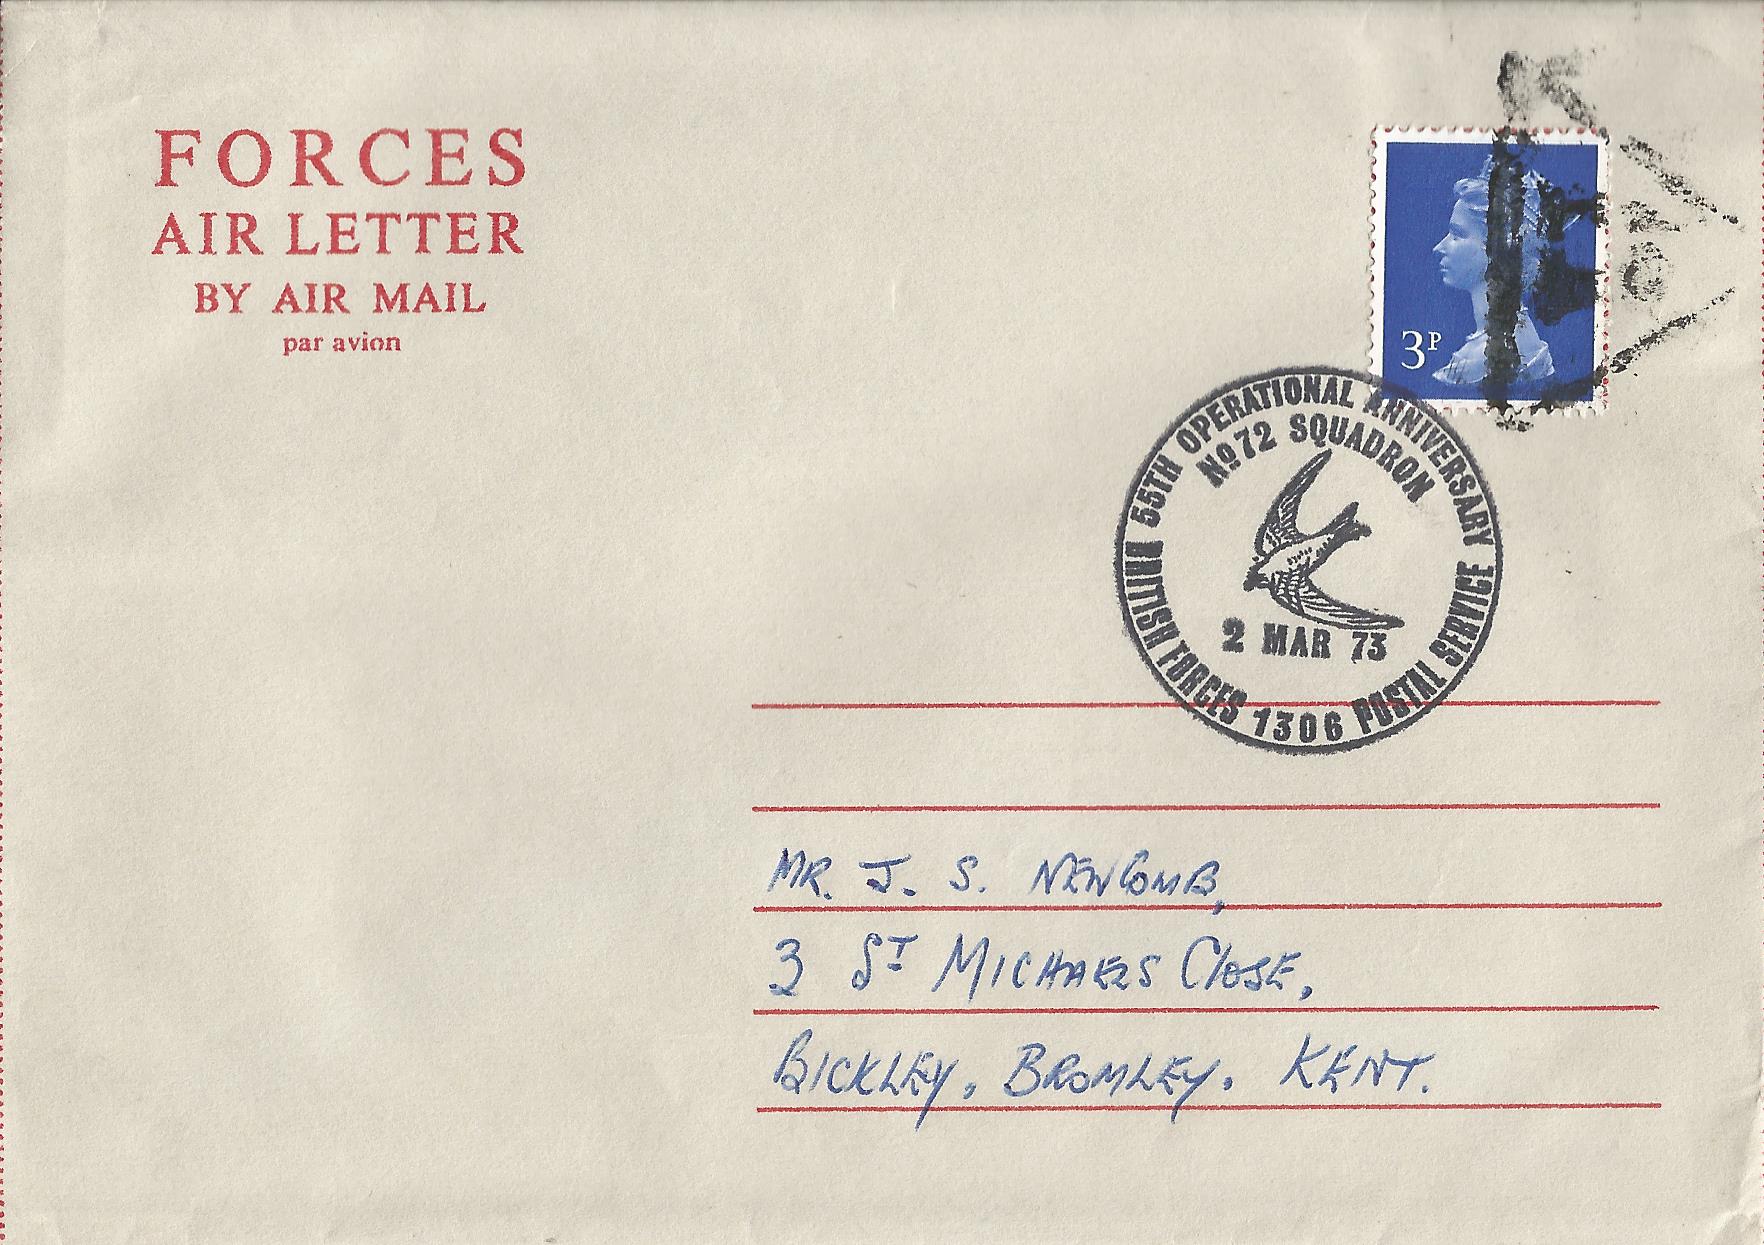 FORCES
AIR LETTER
BY AIR MAIL
par avion
3P
55TH OPERATIONAL ANNIVERSARY
No 72 SQUADRON
2 MAR 73
BRITISH FORCES 1306 POSTAL SERVICE
MR. J. S. NEWCOMB,
3 ST MICHAELS CLOSE,
BICKLEY, BROMLEY. KENT.